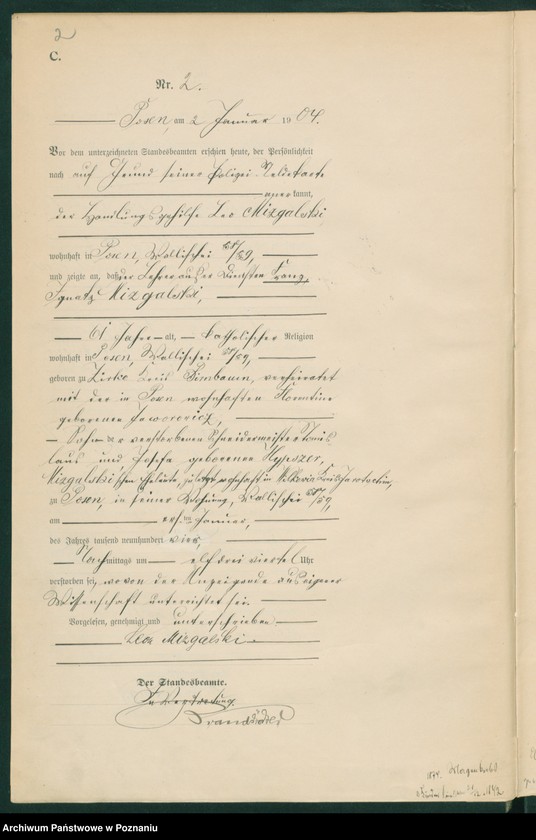 2
C.
Nr. 2.
Posen, am 2 Januar 1904.
Vor dem unterzeichneten Standesbeamten erschien heute, der Persönlichkeit
nach auf Grund seiner Polizei-Meldekarte
anerkannt,
der Handlungsgehilfe Leo Mizgalski,
wohnhaft in Posen, Wallischei 58/59,
und zeigte an, daß der Lehrer außer Diensten Franz
Ignatz Mizgalski,
61 Jahre alt, katholischer Religion
wohnhaft in Posen, Wallischei 58/59,
geboren zu Zirke Kreis Birnbaum, verheiratet
mit der in Posen wohnhaften
geborenen Jaworowicz,
Sohn der verstorbenen Schneidermeister Stanis
laus und Josefa geborenen Hypszer,
Mizgalski'schen Eheleute, zuletzt wohnhaft in Kreis Jarotschin,
zu Posen, in seiner Wohnung, Wallischei 58/59,
am ersten Januar,
des Jahres tausend neunhundert vier,
Nachmittags um elf drei viertel Uhr
verstorben sei, wovon der Anzeigende aus eigener
Wissenschaft unterrichtet sei.
Vorgelesen, genehmigt und unterschrieben
Leon Mizgalski
Der Standesbeamte.
In Vertretung.